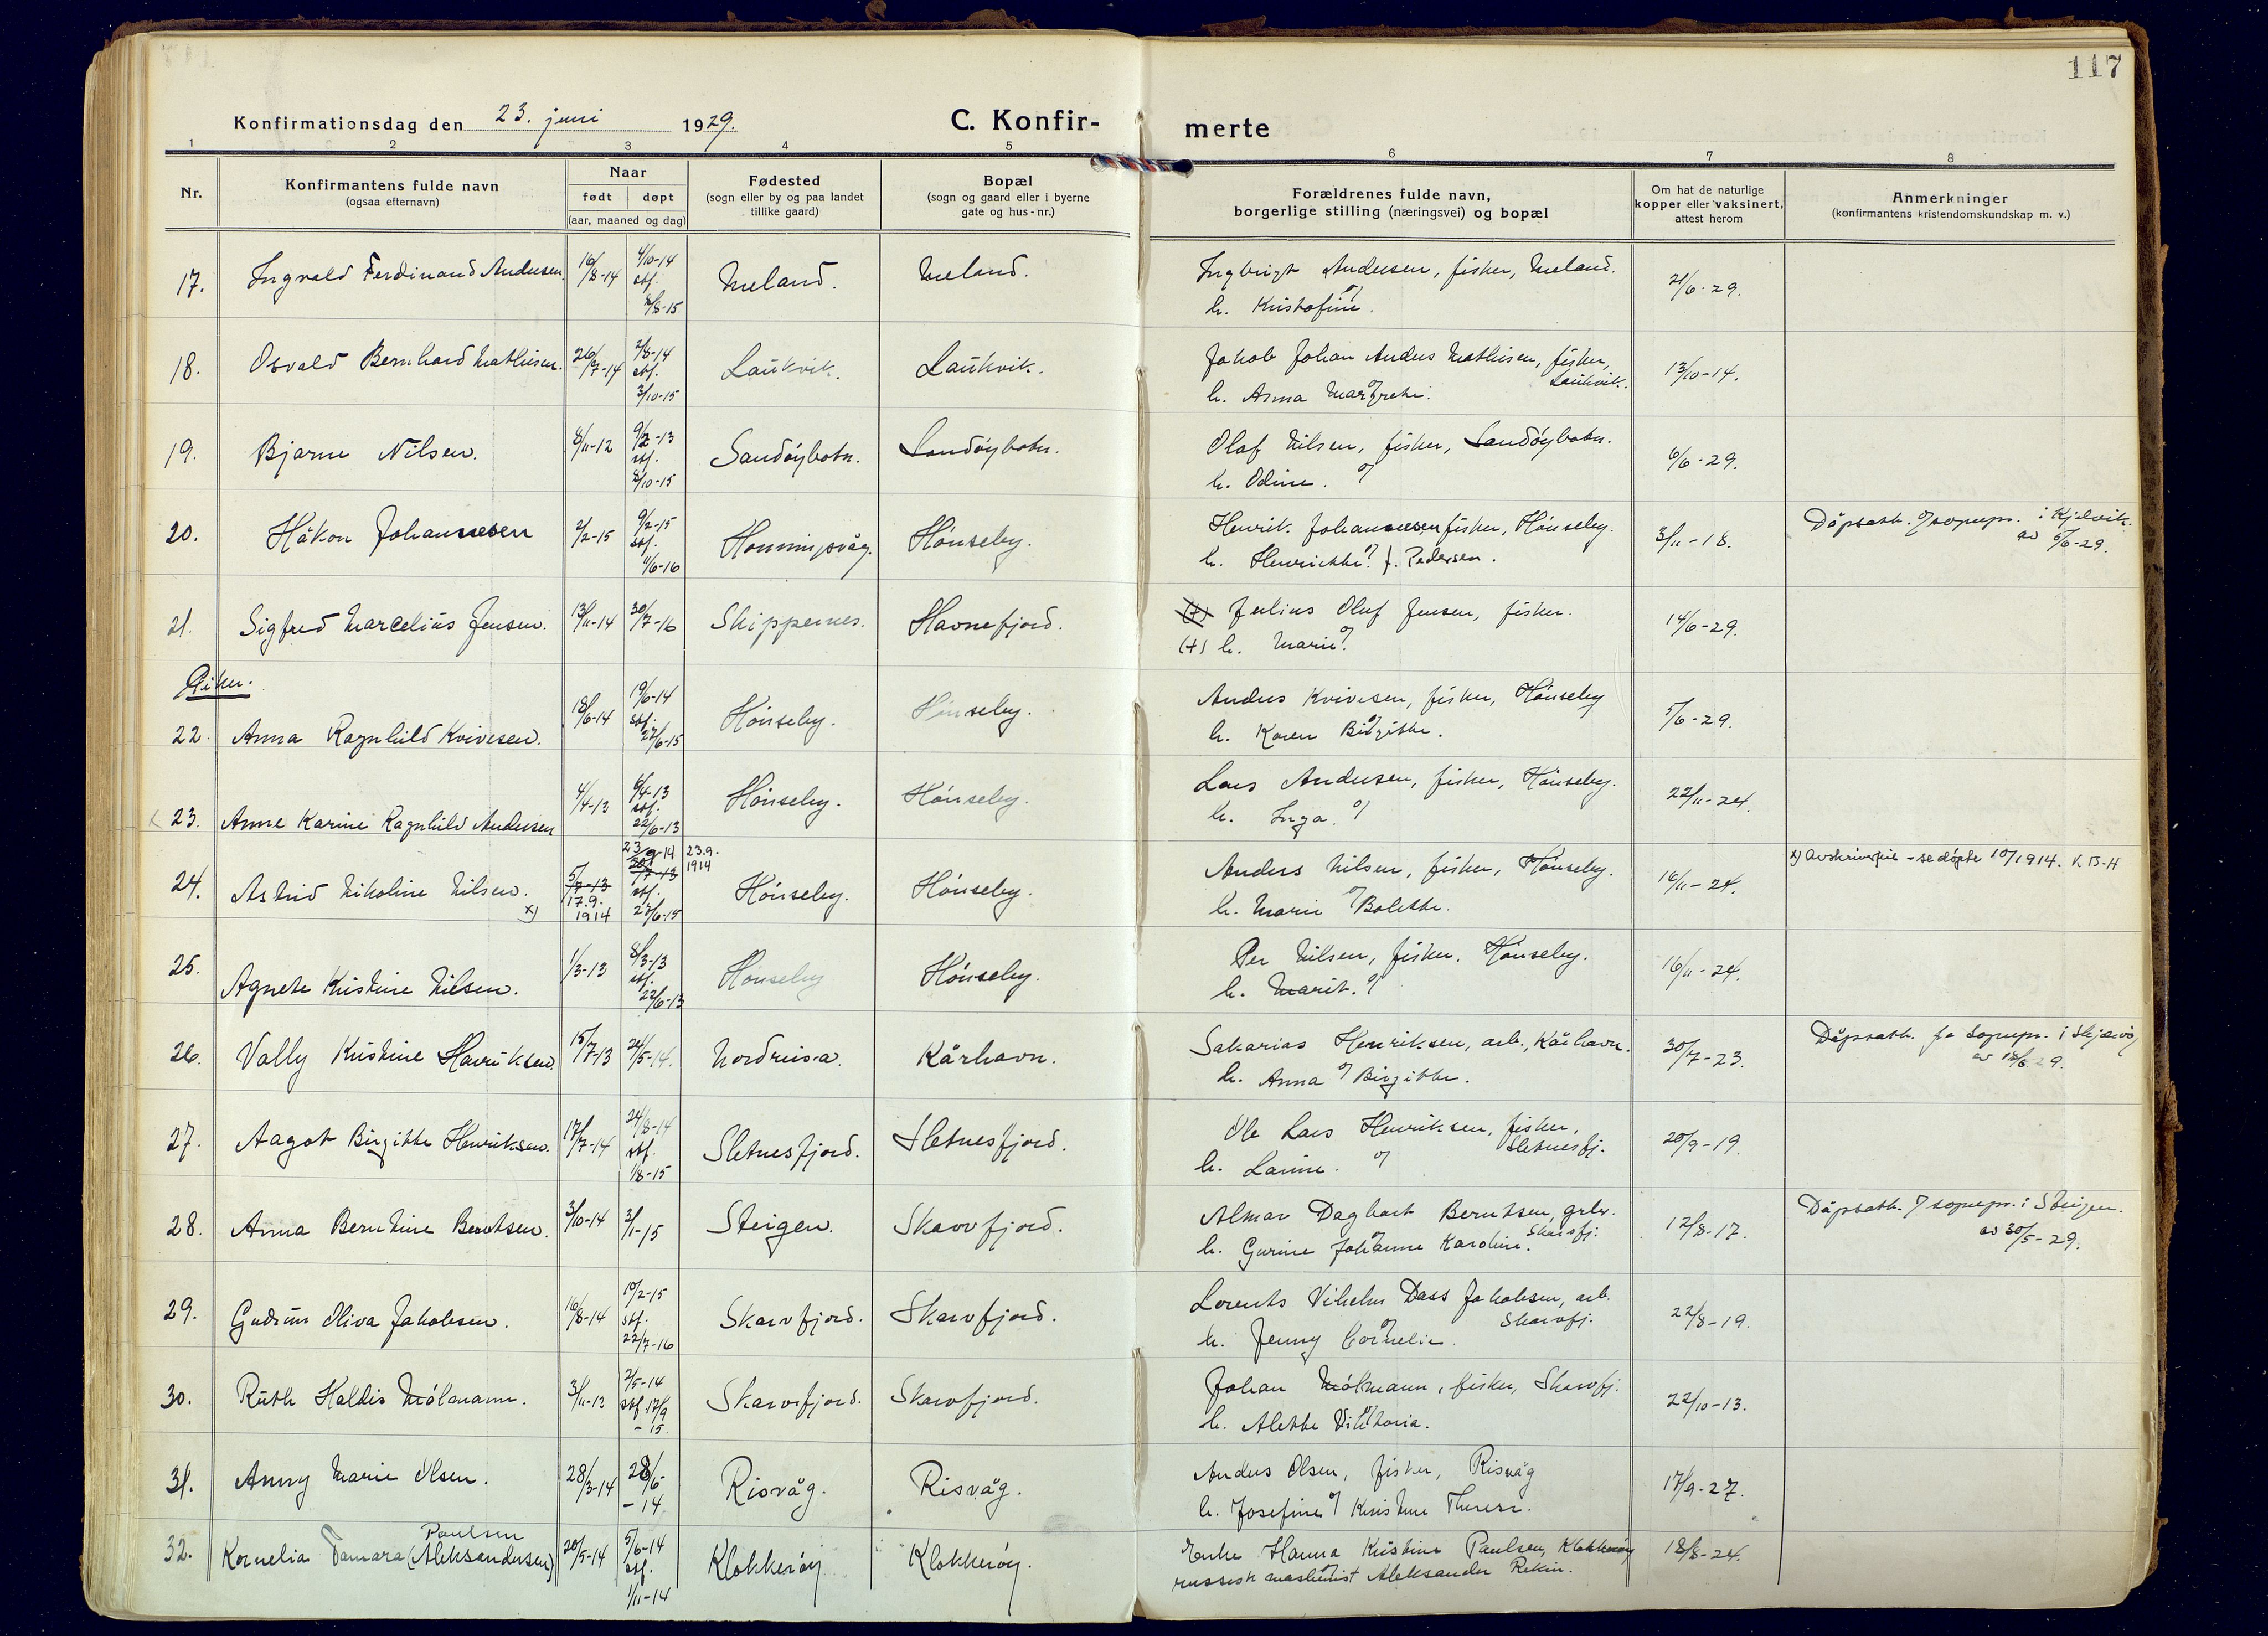 117
Konfirmationsdag den 23. juni 1929.
C. Konfir-
merte
1 2 3 4 5 6 7 8
Nr.
Konfirmantens fulde navn
(ogsaa efternavn)
Naar
født døpt
(aar, maaned og dag)
Fødested
(sogn eller by og paa landet
tillike gaard)
Bopæl
(sogn og gaard eller i byerne
gate og hus-nr.)
Forældrenes fulde navn,
borgerlige stilling (næringsvei) og bopæl
Om hat de naturlige
kopper eller vaksinert,
attest herom
Anmerkninger
(konfirmantens kristendomskundskap m. v.)
17. Ingvald Ferdinand Andersen 16/8-14 4/10-14 Meland. Meland. Ingbrigt Andersen, fisker, Meland. 21/6-29.
stf.
8/8-15 h. Kristofine.
18. Osvald Bernhard Mathisen. 26/7-14 2/8-14 Laukvik. Laukvik. Jakob Johan Anders Mathisen, fisker, 13/10-14.
stf. Laukvik.
3/10-15 h. Anna Margrethe.
19. Bjarne Nilsen. 8/11-12 9/2-13 Sandøybotn. Sandøybotn. Olaf Nilsen, fisker, Sandøybotn. 6/6-29.
stf.
8/10-15 h. Odine.
20. Håkon Johannesen 2/2-15 9/2-15 Honningsvåg. Hønseby. Henrik Johannesen fisker, Hønseby. 3/11-18. Dåpsatt. f sognepr. i Kjelvik.
stf. av 6/6-29.
11/6-16 h. Henrikke f. Pedersen.
21. Sigfred Marcelius Jensen. 13/11-14 30/7-16 Skippernes. Havnefjord. (+) Julius Oluf Jensen, fisker. 14/6-29.
(+) h. Marie
Piker.
22. Anna Ragnhild Kvivesen. 18/6-14 19/6-14 Hønseby. Hønseby. Anders Kvivesen, fisker, Hønseby 5/6-29.
stf.
27/6-15 h. Karen Birgitte.
23. Anne Karine Ragnhild Andersen 4/4-13 6/4-13 Hønseby. Hønseby. Lars Andersen, fisker, Hønseby. 22/11-24.
stf.
22/6-13 h. Inga.
24. Astrid Nikoline Nilsen. x) 5/7-13 23/9-14 23.9. 1914 Hønseby. Hønseby. Anders Nilsen, fisker, Hønseby. 16/11-24. x) Avskriverfeil - se døpte 10/1914. K B-H
17.9. 1914 stf.
27/6-15 h. Marie Bolette.
25. Agnete Kristine Nilsen. 1/3-13 8/3-13 Hønseby Hønseby. Per Nilsen, fisker. Hønseby. 16/11-24.
stf.
22/6-13 h. Marit.
26. Vally Kristine Henriksen 15/7-13 24/5-14. Nordreisa. Kårhavn. Sakarias Henriksen, arb., Kårhavn. 30/7-23. Dåpsatt. fra sognepr. i Skjervøy
h. Anna Birgitte. av 18/6 29.
27. Aagot Birgitte Henriksen. 17/7-14 24/8-14 Sletnesfjord. Sletnesfjord. Ole Lars Henriksen, fisker, 20/9-19.
stf. Sletnesfj.
1/8-15 h. Larine.
28. Anna Berntine Berntsen. 3/10-14 3/1-15 Steigen. Skarvfjord. Almar Dagbart Berntsen, grbr. 12/8-17. Dåpsatt. f sognepr. i Steigen.
Skarvfj. av 30/5-29.
h. Gurine Johanne Karoline.
29. Gudrun Oliva Jakobsen. 16/8-14 10/2-15 Skarvfjord. Skarvfjord. Lorents Vilhelm Dass Jakobsen, arb. 22/8-19.
stf. Skarvfj.
22/7-16 h. Jenny Cornelie.
30. Ruth Haldis Mølmann. 3/11-13 2/5-14 Skarvfjord. Skarvfjord. Johan Mølmann, fisker, Skarvfj. 22/10-13.
stf 17/9
-15. h. Alette Viktoria.
31. Anny Marie Olsen. 28/3-14 28/6- Risvåg. Risvåg. Anders Olsen, fisker, Risvåg 17/9-27.
-14 h. Josefine Kristine Therese.
Paulsen
32. Kornelia Tamara (Aleksandersen) 20/5-14 5/6-14 Klokkerøy Klokkerøy. Enke Hanna Kristine Paulsen, Klokkerøy 18/8-24.
stf. russisk maskinist Aleksander Rekin.
1/11-14